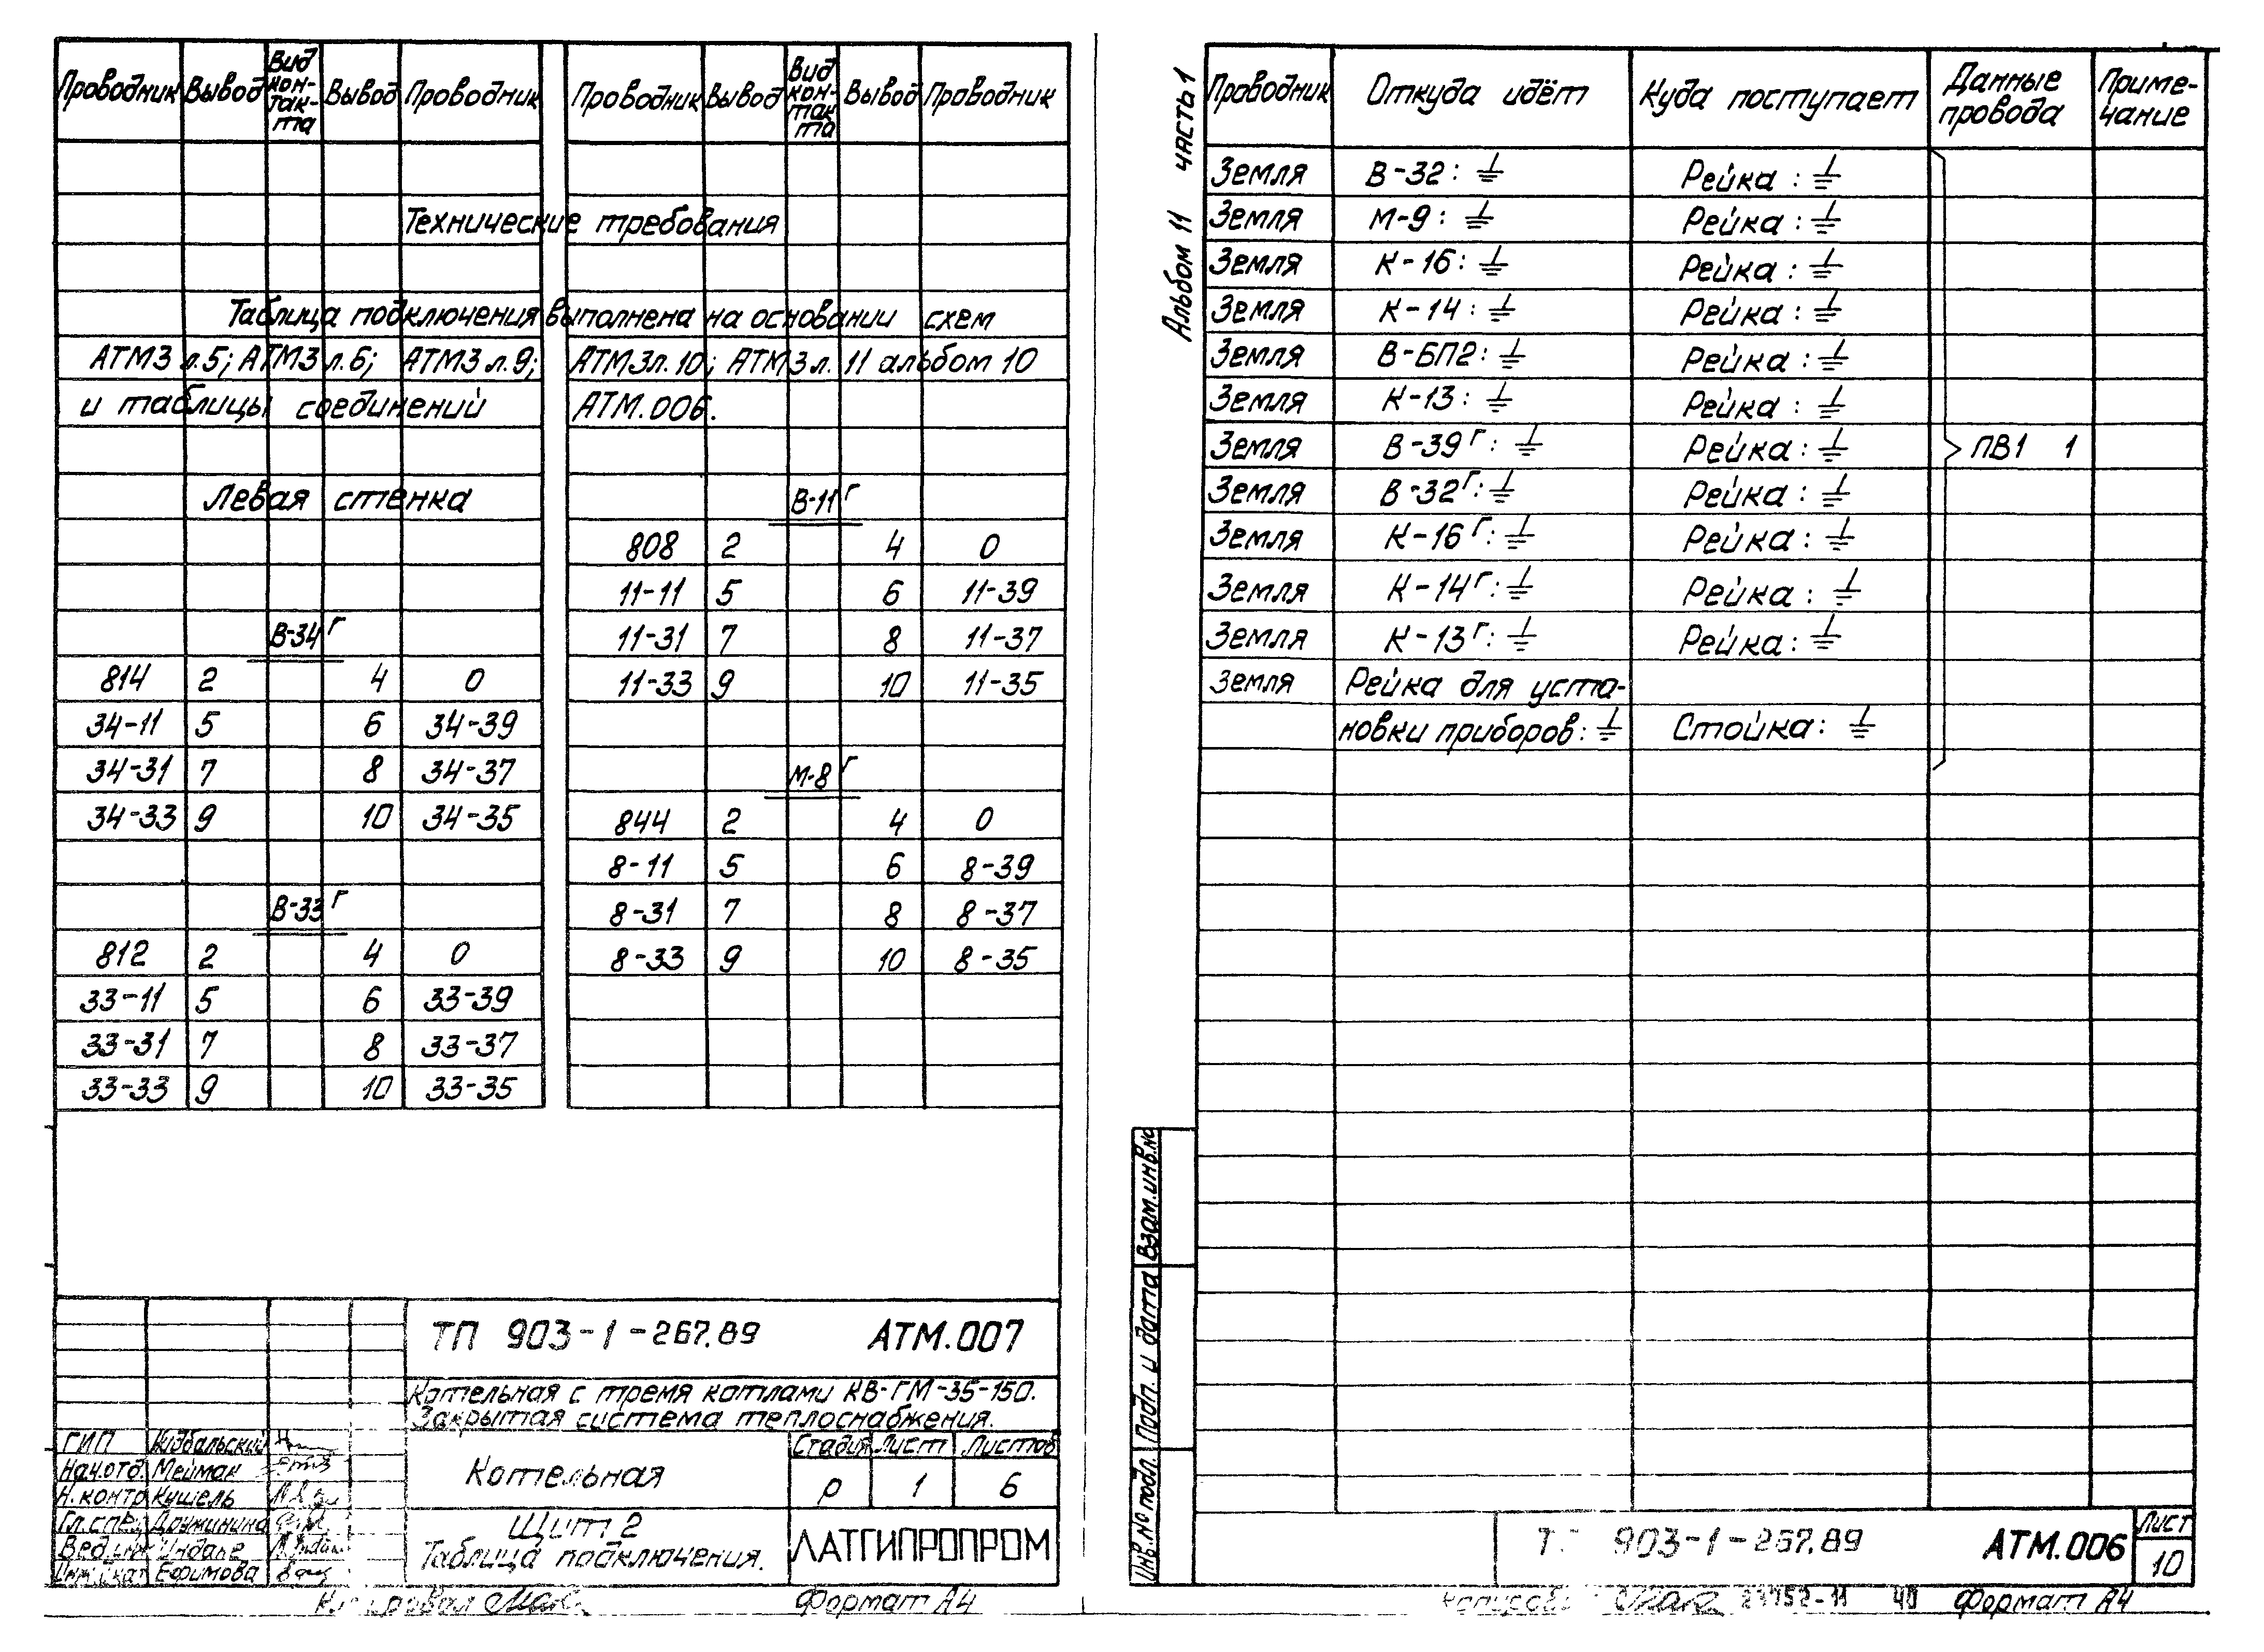 Проводник Вывод Вид кон-так-та Вывод Проводник Проводник Вывод Вид кон-так та Вывод Проводник
Технические требования
Таблица подключения выполнена на основании схем
АТМ3 л.5; АТМ3 л.6; АТМ3 л.9; АТМ3 л.10; АТМ3 л. 11 альбом 10
и таблицы соединений АТМ.006.
Левая стенка
В-34 Г
814 2 4 0
34-11 5 6 34-39
34-31 7 8 34-37
34-33 9 10 34-35
В-33 Г
812 2 4 0
33-11 5 6 33-39
33-31 7 8 33-37
33-33 9 10 33-35
В-11 Г
808 2 4 0
11-11 5 6 11-39
11-31 7 8 11-37
11-33 9 10 11-35
М-8 Г
844 2 4 0
8-11 5 6 8-39
8-31 7 8 8-37
8-33 9 10 8-35
ТП 903-1-267.89 АТМ.007
Котельная с тремя котлами КВ-ГМ-35-150.
Закрытая система теплоснабжения.
ГИП
Нач.отд. Меймак
Н. контр Кушель
Гл.спец Дружинина
Вед.инж Индане
Инж.Iкат Ефимова
Котельная
Стадия Лист Листов
р 1 6
Щит 2
Таблица подключения.
ЛАТГИПРОПРОМ
Копировал
Формат А4
Альбом 11 часть 1
Проводник Откуда идёт Куда поступает Данные провода Приме-чание
Земля В-32: ⏚ Рейка: ⏚
Земля М-9: ⏚ Рейка: ⏚
Земля К-16: ⏚ Рейка: ⏚
Земля К-14: ⏚ Рейка: ⏚
Земля В-БП2: ⏚ Рейка: ⏚
Земля К-13: ⏚ Рейка: ⏚
Земля В-39 Г: ⏚ Рейка: ⏚ ПВ1 1
Земля В-32 Г: ⏚ Рейка: ⏚
Земля К-16 Г: ⏚ Рейка: ⏚
Земля К-14 Г: ⏚ Рейка: ⏚
Земля К-13 Г: ⏚ Рейка: ⏚
Земля Рейка для уста-
новки приборов: ⏚ Стойка: ⏚
Инв.№ подл. Подп. и дата Взам.инв.но
903-1-267.89 АТМ.006
Лист
10
40 Формат А4